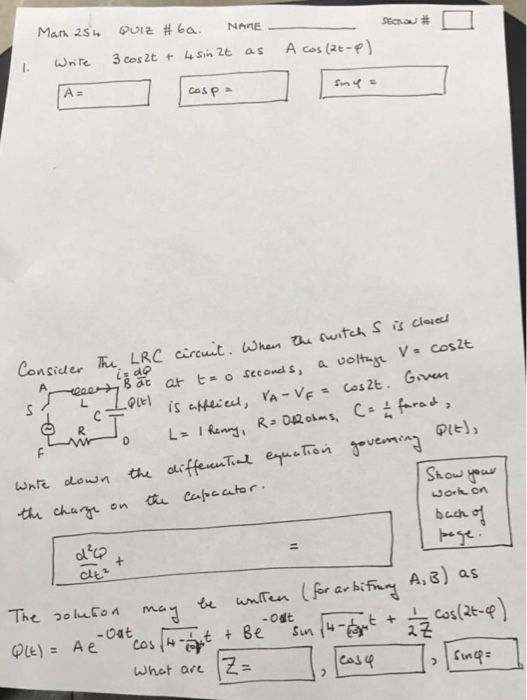 Math 254 QUIZ # 6a. NAME SECTION #
1. Write 3 cos 2t + 4 sin 2t as A cos (2t-φ)
A =
cos φ =
sin φ =
Consider The LRC circuit. When the switch S is closed
i = dQ/dt at t = 0 seconds, a voltage V = cos2t
A B S L C Q(t) R F D
is applied, VA - VF = cos2t. Given
L = 1 henry, R = ohms, C = 1/4 farad,
Write down the differential equation governing Q(t),
the charge on the capacitor.
Show your
work on
back of
page.
d²Q/dt² + =
The solution may be written (for arbitrary A, B) as
Q(t) = A e cos √4- t + B e sin √4- t + 1/2Z cos(2t-φ)
What are Z = , cos φ , sin φ =